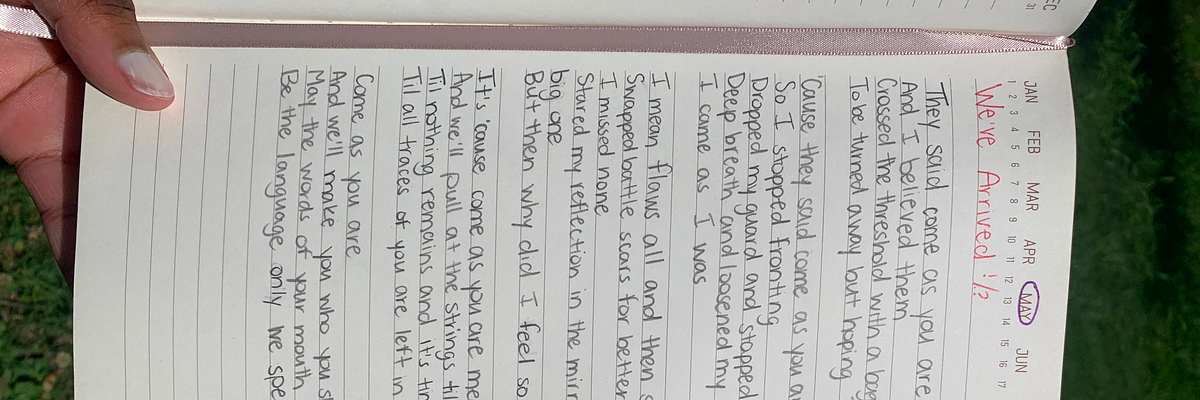 EC
31
JAN FEB MAR APR MAY JUN
1 2 3 4 5 6 7 8 9 10 11 12 13 14 15 16 17
We've Arrived!/?
They said come as you are
And I believed them
Crossed the threshold with a
To be turned away but hoping
'Cause they said come as you
So I stopped fronting
Dropped my guard and stopped
Deep breath and loosened my
I came as I was
I mean flaws all and then
Swapped battle scars for better
I missed none
Stared my reflection in the
big one
But then why did I feel so
It's 'cause come as you are
And we'll pull at the strings
Til nothing remains and it's
Til all traces of you are left in
Come as you are
And we'll make you who you
May the words of your mouth
Be the language only we